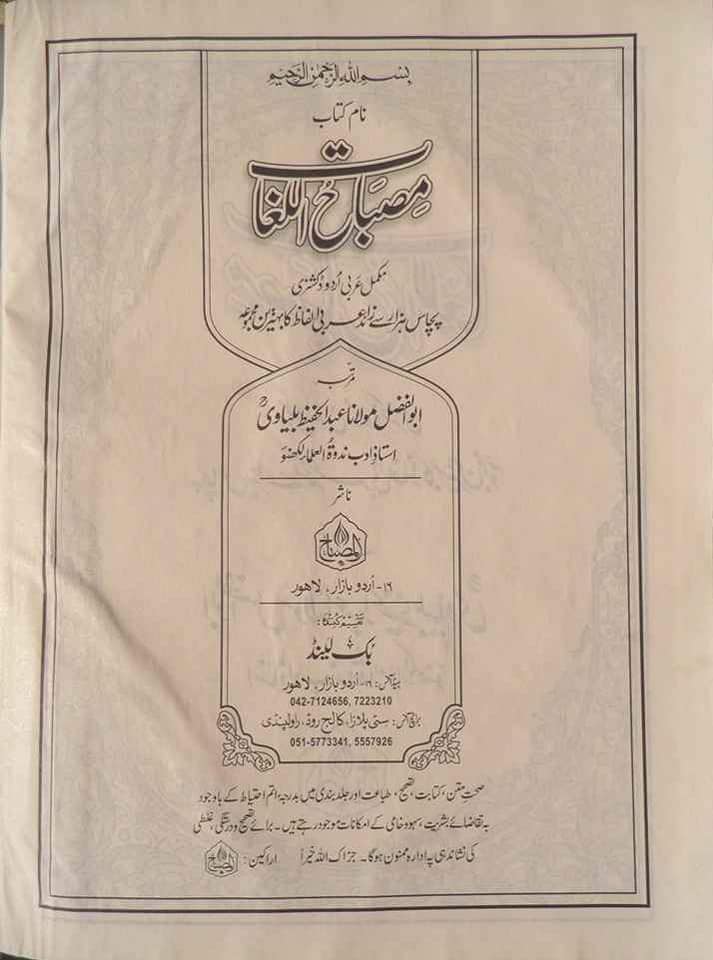 بسم الله الرحمن الرحيم
نام کتاب
مصباح اللغات
مکمل عربی اردو ڈکشنری
پچاس ہزار سے زائد عربی الفاظ کا بہترین مجموعہ
مرتب
ابو الفضل مولانا عبد الحفیظ بلیاویؒ
استاذ ادب ندوۃ العلماء لکھنؤ
ناشر
المصباح
۱۶- اُردو بازار، لاہور
تقسیم کنندہ:
بک لینڈ
ہیڈ آفس: ۱۶- اُردو بازار، لاہور
042-7124656, 7223210
برانچ آفس: سٹی پلازا، کالج روڈ، راولپنڈی
051-5773341, 5557926
صحتِ متن، کتابت، تصحیح، طباعت اور جلد بندی میں بدرجۂ اتم احتیاط کے باوجود
بہ تقاضائے بشریت، سہو و خامی کے امکانات موجود رہتے ہیں۔ برائے تصحیح و درستگی، غلطی
کی نشاندہی پہ ادارہ ممنون ہوگا۔ جزاک اللہ خیراً اراکین: المصباح